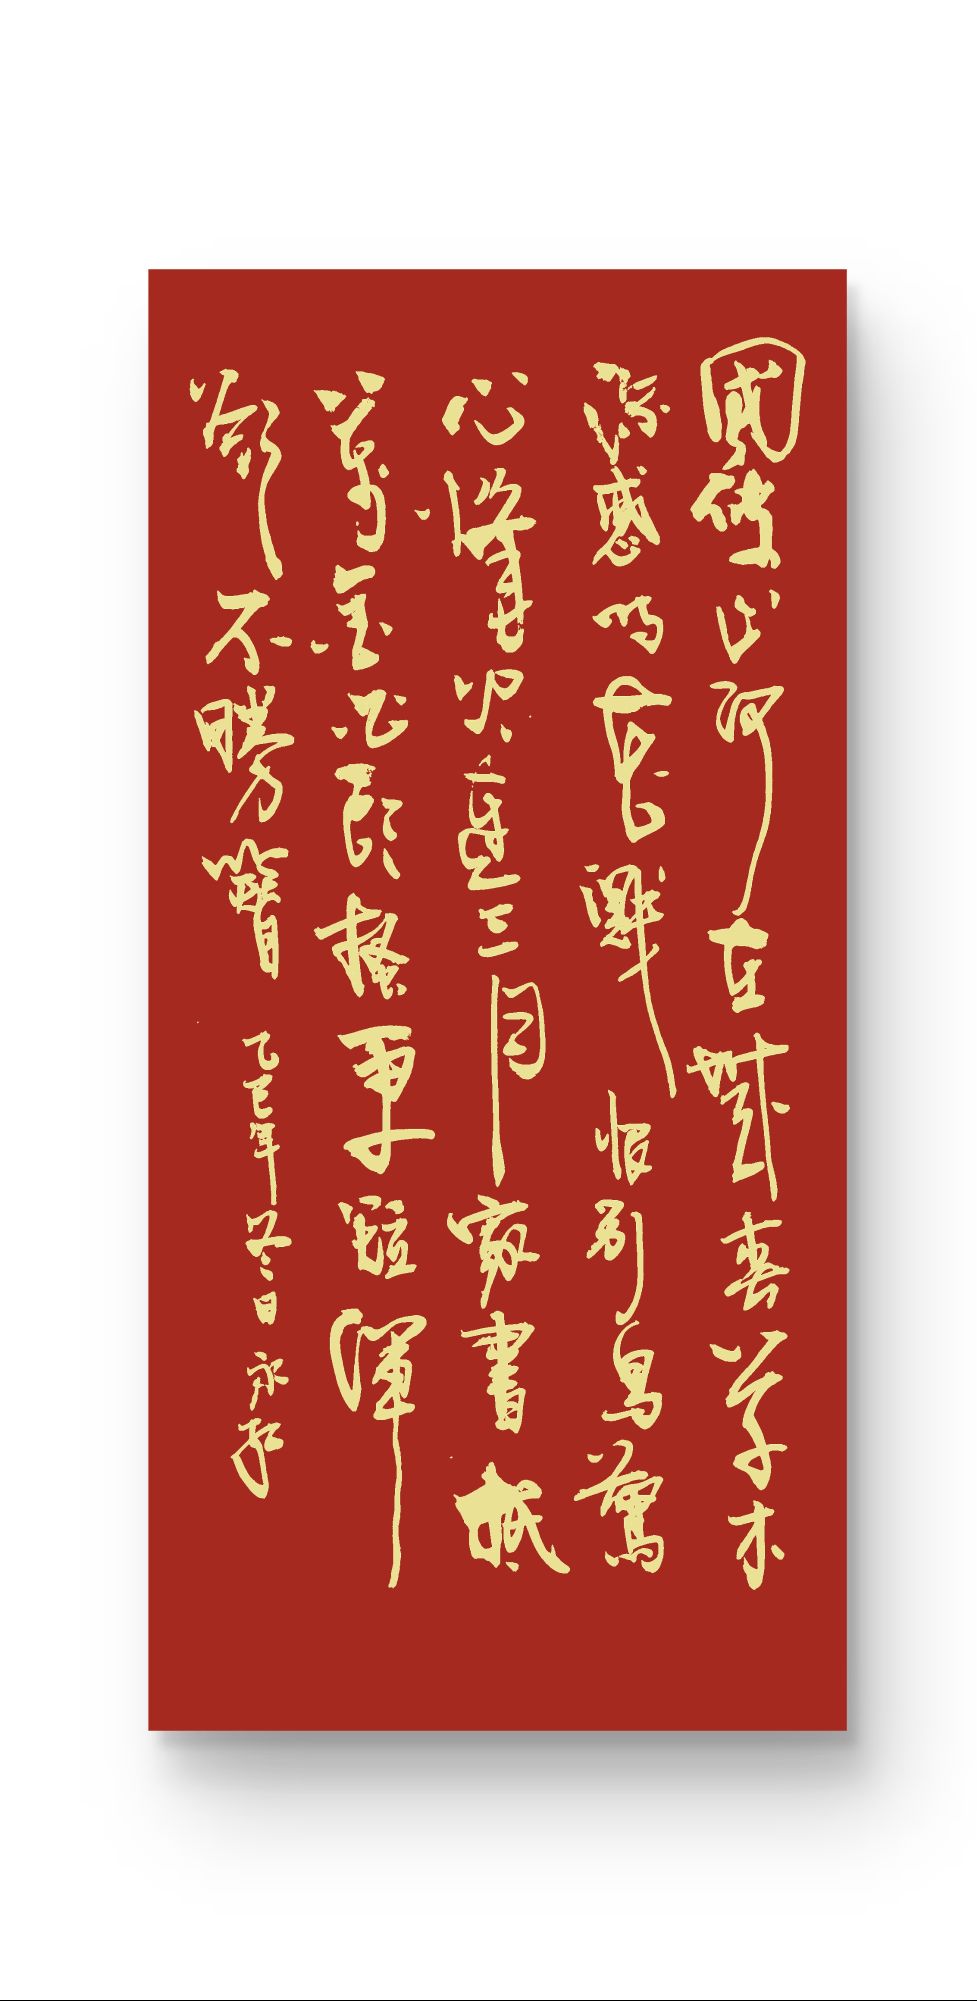 國破山河在城春草木
深感時花濺恨別鳥驚
心烽火連三月家書抵
萬金白頭搔更短渾
欲不勝簪 乙巳年冬日 永